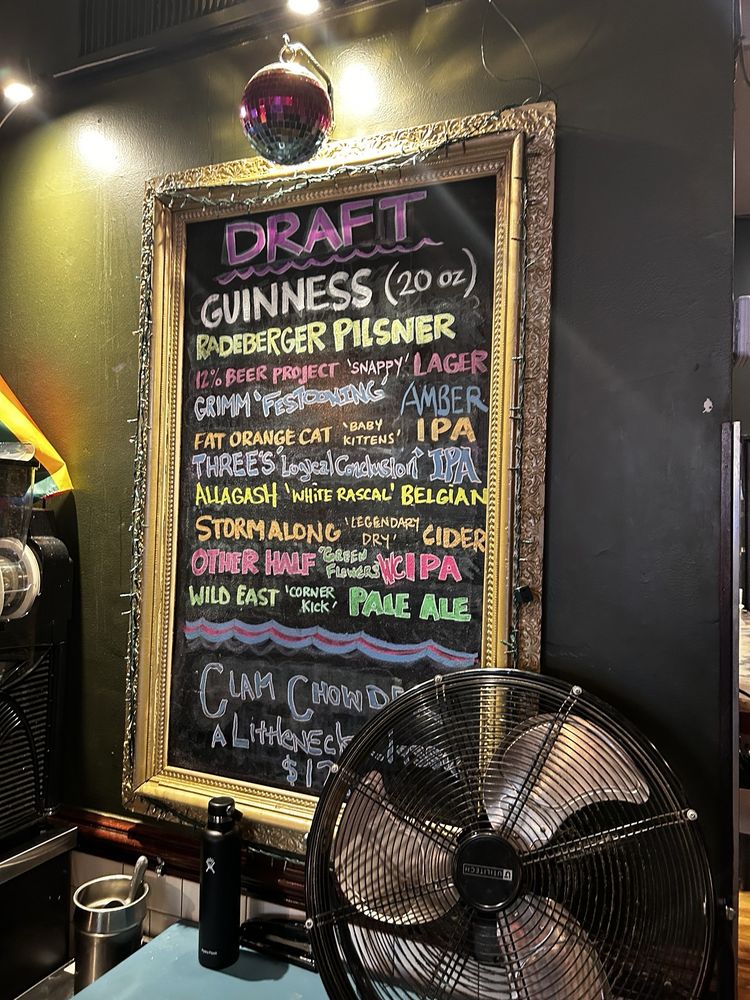 DRAFT
GUINNESS (20 oz)
RADEBERGER PILSNER
12% BEER PROJECT 'SNAPPY' LAGER
GRIMM 'FESTOONING' AMBER
FAT ORANGE CAT 'BABY KITTENS' IPA
THREE'S 'Logical Conclusion' IPA
ALLAGASH 'WHITE RASCAL' BELGIAN
STORMALONG 'LEGENDARY DRY' CIDER
OTHER HALF 'GREEN FLOWERS' WCIPA
WILD EAST 'CORNER KICK' PALE ALE
CLAM
A LittleNECK
UTILITECH
Hydro Flask